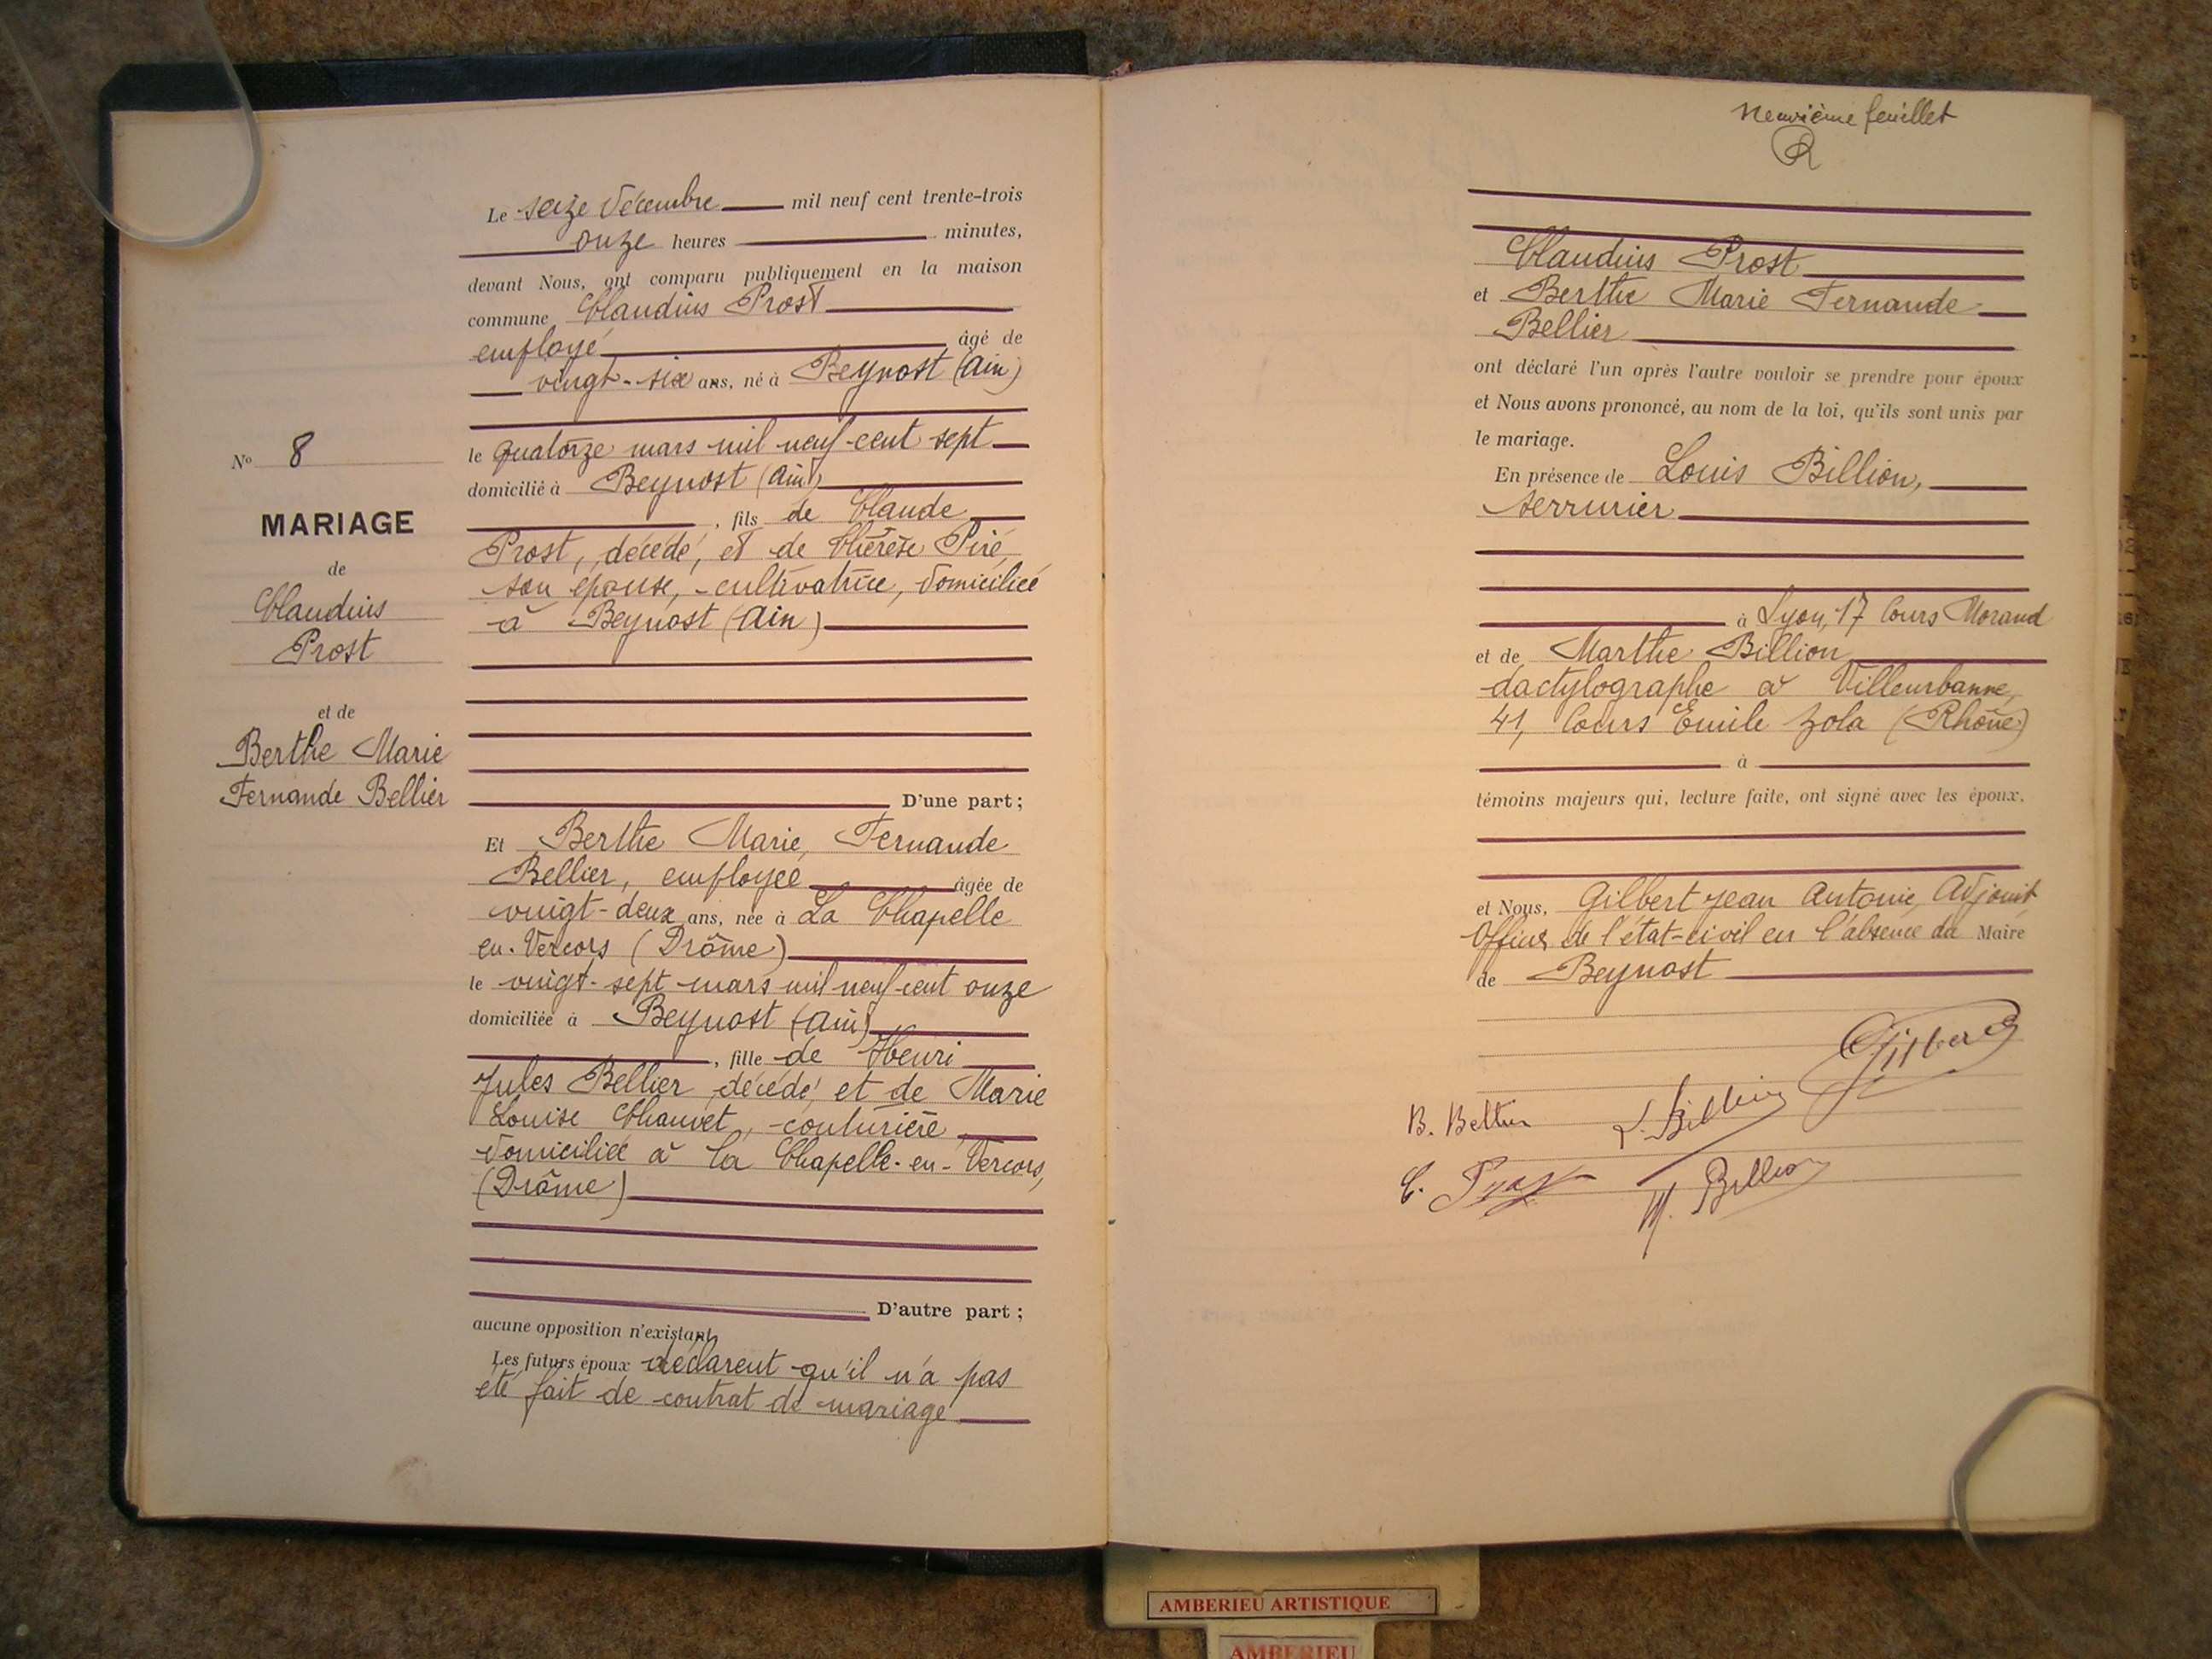 Le seize décembre mil neuf cent trente-trois
onze heures minutes,
devant Nous, ont comparu publiquement en la maison
commune Claudius Prost
employé âgé de
vingt-six ans, né à Beynost (Ain)
le quatorze mars mil neuf cent sept
domicilié à Beynost (Ain)
, fils de Claude
Prost, décédé, et de Thérèse Piré,
son épouse, cultivatrice, domiciliée
à Beynost (Ain)
D'une part;
Et Berthe Marie, Fernande
Bellier, employée âgée de
vingt-deux ans, née à La Chapelle
en-Vercors (Drôme)
le vingt-sept mars mil neuf cent onze
domiciliée à Beynost (Ain)
, fille de Henri
Jules Bellier décédé, et de Marie
Louise Chauvet, couturière,
domiciliée à la Chapelle-en-Vercors,
(Drôme)
D'autre part;
aucune opposition n'existant
Les futurs époux déclarent qu'il n'a pas
été fait de contrat de mariage
No 8
MARIAGE
de
Claudius
Prost
et de
Berthe Marie
Fernande Bellier
Neuvième feuillet
R
Claudius Prost
et Berthe Marie Fernande
Bellier
ont déclaré l'un après l'autre vouloir se prendre pour époux
et Nous avons prononcé, au nom de la loi, qu'ils sont unis par
le mariage.
En présence de Louis Billion,
serrurier
à Lyon, 17 Cours Morand
et de Marthe Billion
dactylographe à Villeurbanne,
41, Cours Emile Zola (Rhône)
à
témoins majeurs qui, lecture faite, ont signé avec les époux.
et Nous, Gilbert Jean Antoine, Adjoint
Officier de l'état-civil en l'absence du Maire
de Beynost
Gilbert
B. Bellier L. Billion
C. Prost M. Billion
AMBERIEU ARTISTIQUE
AMBERIEU